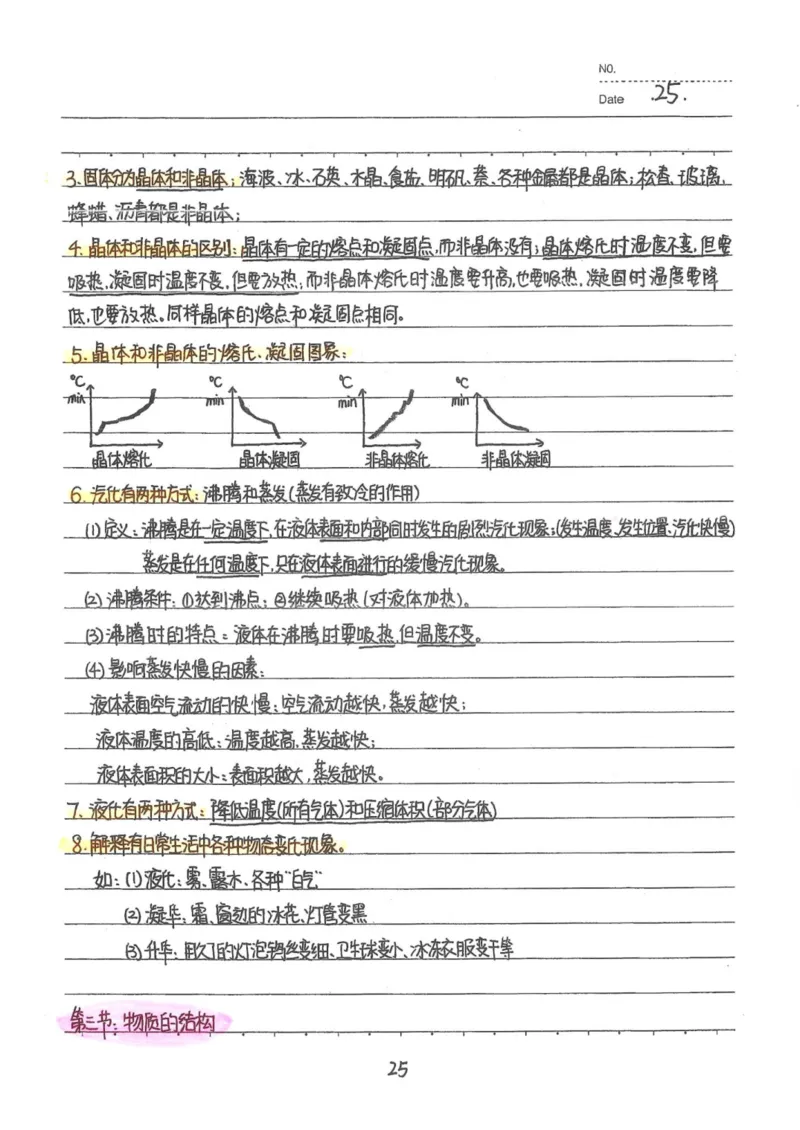 NO.
Date 25.
3.固体分为晶体和非晶体:海波、冰、石英、水晶、食盐、明矾、萘、各种金属都是晶体;松香、玻璃、
蜂蜡、沥青都是非晶体;
4.晶体和非晶体的区别:晶体有一定的熔点和凝固点,而非晶体没有;晶体熔化时温度不变,但要
吸热,凝固时温度不变,但要放热;而非晶体熔化时温度要升高,也要吸热,凝固时温度要降
低,也要放热。同样晶体的熔点和凝固点相同。
5.晶体和非晶体的熔化、凝固图象:
℃ ℃ ℃ ℃
min min min min
晶体熔化 晶体凝固 非晶体熔化 非晶体凝固
6.汽化有两种方式:沸腾和蒸发(蒸发有致冷的作用)
(1)定义:沸腾是在一定温度下,在液体表面和内部同时发生的剧烈汽化现象;(发生温度、发生位置、汽化快慢)
蒸发是在任何温度下,只在液体表面进行的缓慢汽化现象。
(2)沸腾条件:①达到沸点;②继续吸热(对液体加热)。
(3)沸腾时的特点:液体在沸腾时要吸热,但温度不变。
(4)影响蒸发快慢的因素:
液体表面空气流动的快慢:空气流动越快,蒸发越快;
液体温度的高低:温度越高,蒸发越快;
液体表面积的大小:表面积越大,蒸发越快。
7.液化有两种方式:降低温度(所有气体)和压缩体积(部分气体)
8.解释有日常生活中各种物态变化现象。
如:(1)液化:雾、露水、各种“白气”
(2)凝华:霜、窗边的冰花、灯管变黑
(3)升华:用久了的灯泡钨丝变细、卫生球变小、冰冻衣服变干等
第三节:物质的结构
25